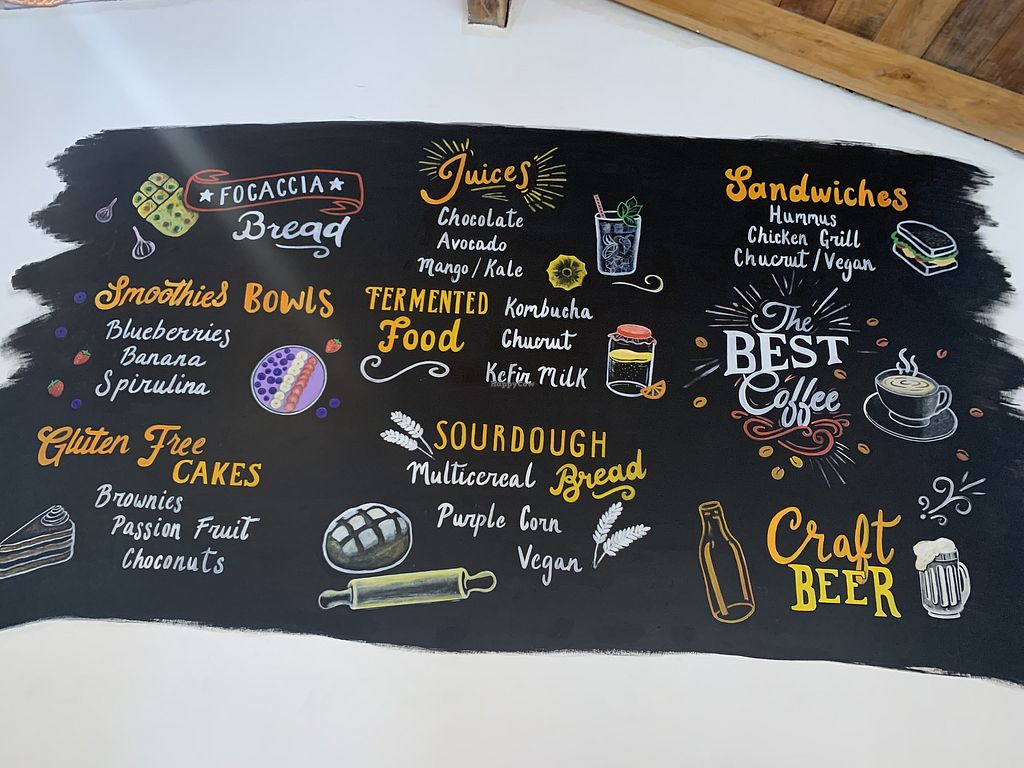 ★ FOCACCIA ★
Bread
Juices
Chocolate
Avocado
Mango/Kale
Sandwiches
Hummus
Chicken Grill
Chucrut/Vegan
Smoothies BOWLS
Blueberries
Banana
Spirulina
FERMENTED
Food
Kombucha
Chucrut
Kefir Milk
HappyCow
The
BEST
Coffee
Gluten Free
CAKES
Brownies
Passion Fruit
Choconuts
SOURDOUGH
Multicereal Bread
Purple Corn
Vegan
Craft
BEER